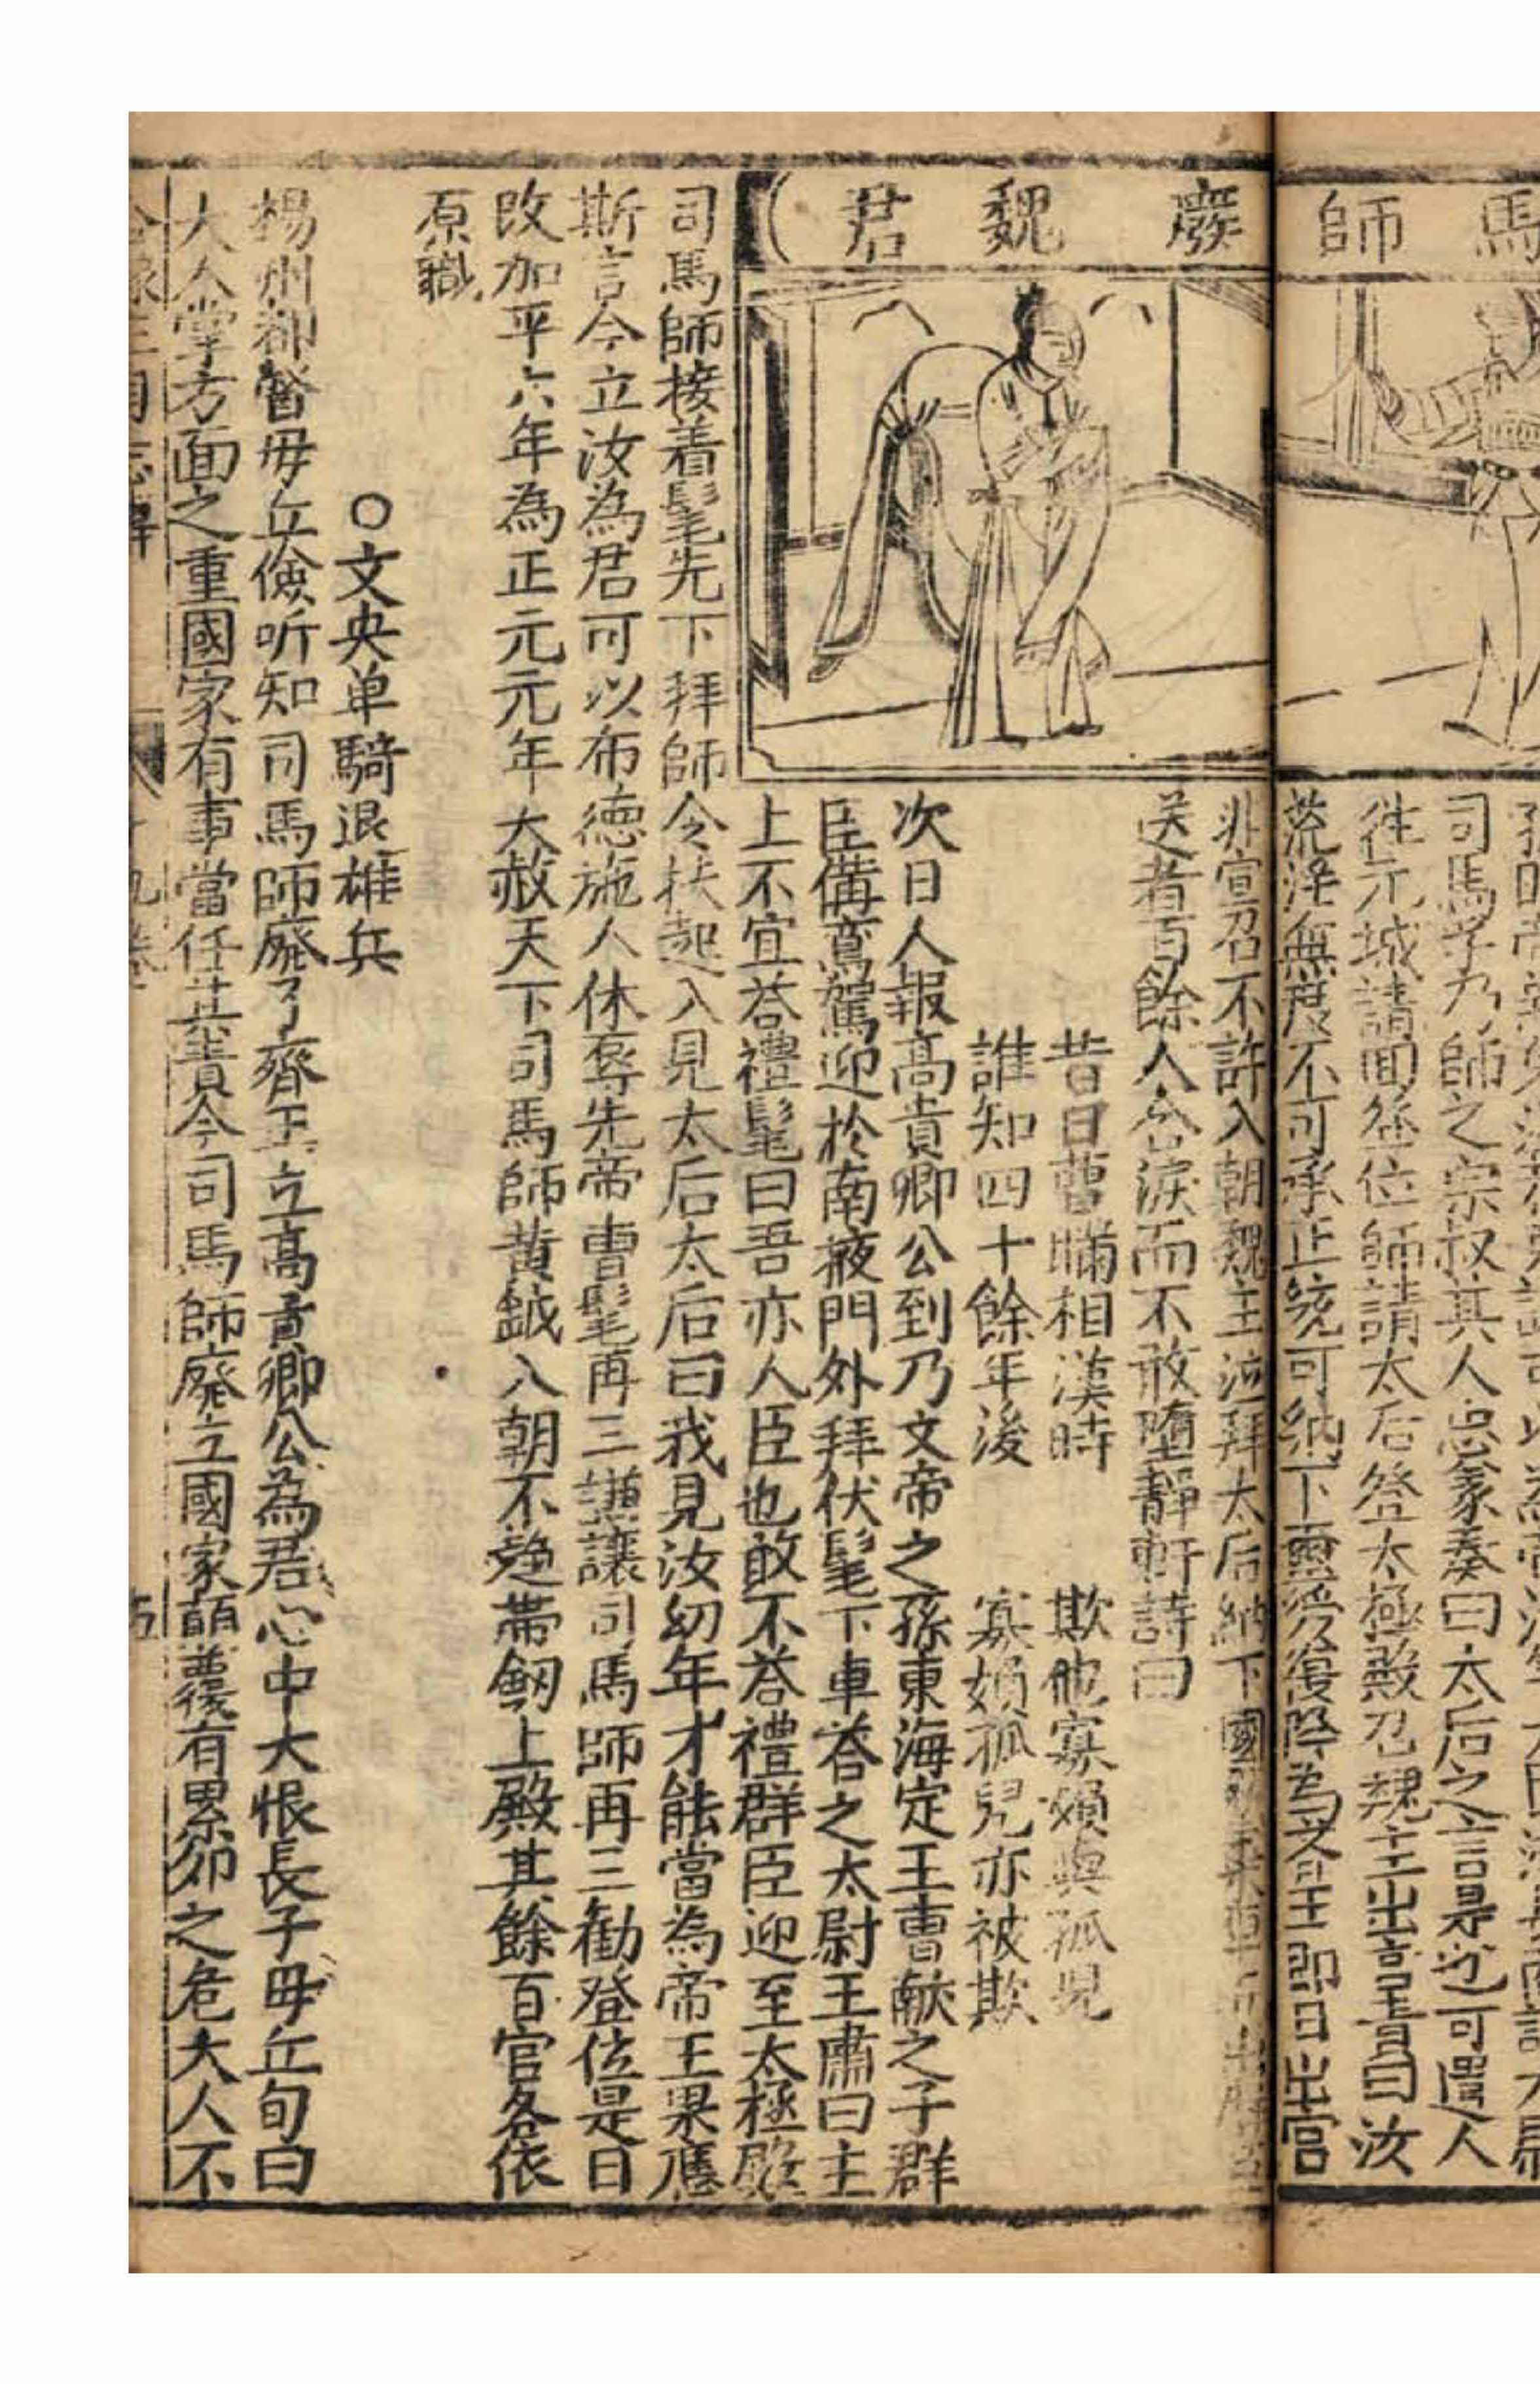 馬師廢魏君
司馬孚乃師之宗叔其人忠義奏曰太后之言是也可遣人
徃元城請回登位師請太后登太極殿召魏主出責曰汝
荒淫無度不可承正統可納下璽綬復降為齊王即日出宮
非宣召不許入朝魏主泣拜太后納下國
送者百餘人含淚而不敢墮靜軒詩曰
昔日曹瞞相漢時 欺他寡婦與孤児
誰知四十餘年後 寡婦孤兒亦被欺
次日人報高貴卿公到乃文帝之孫東海定王曹献之子群
臣俻鸞駕迎扵南掖門外拜伏髦下車荅之太尉王肅曰主
上不宜荅禮髦曰吾亦人臣也敢不荅禮群臣迎至太極殿
司馬師接着髦先下拜師令扶起入見太后太后曰我見汝幼年才能當為帝王果應
斯言今立汝為君可以布德施人休辱先帝曹髦再三謙讓司馬師再三勸登位是日
改加平六年為正元元年大赦天下司馬師黃鉞入朝不趍帶劒上殿其餘百官各依
原職
○文央单騎退雄兵
楊州都督毋丘儉听知司馬師廢了齊王立高貴卿公為君心中大恨長子毋丘旬曰
大人掌方面之重國家有事當任其責今司馬師廢立國家顛覆有累卵之危大人不